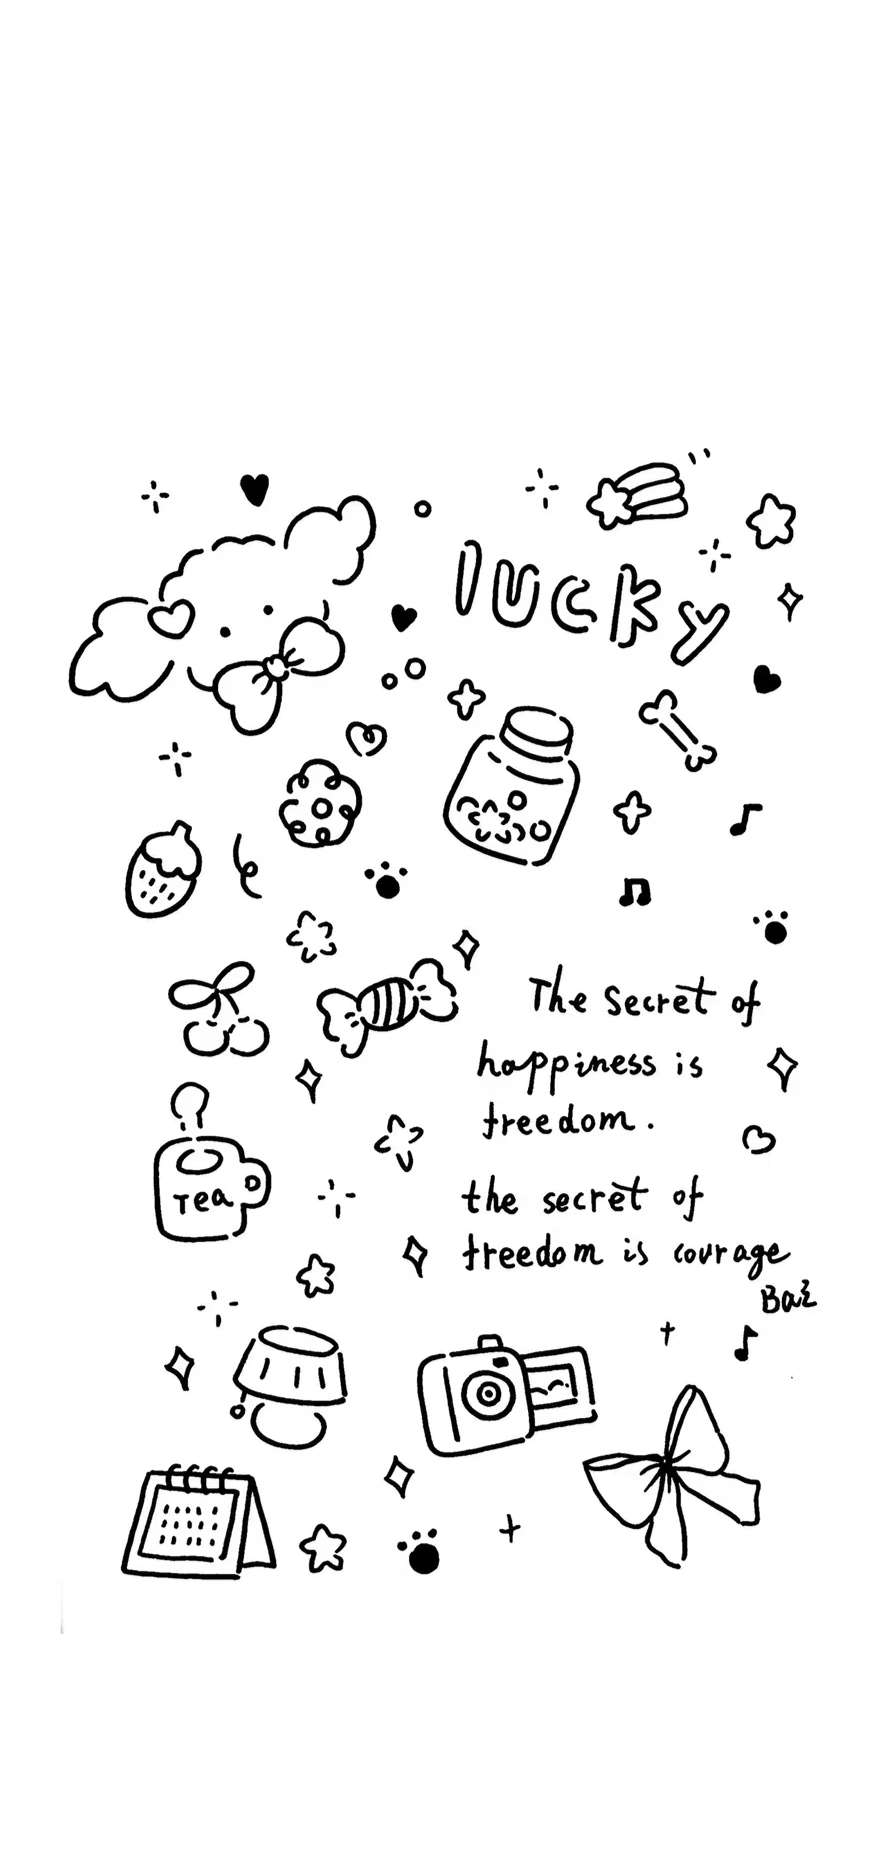 lucky
The secret of
happiness is
freedom.
Tea
the secret of
freedom is courage